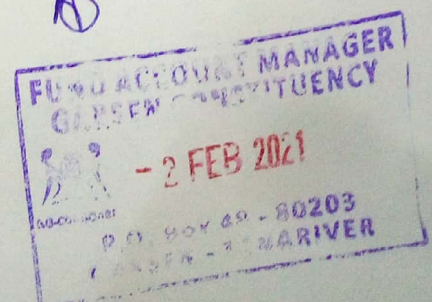 FUND ACCOUNT MANAGER
GARSEN CONSTITUENCY
- 2 FEB 2021
P.O. BOX 69 - 80203
GARSEN - TANARIVER